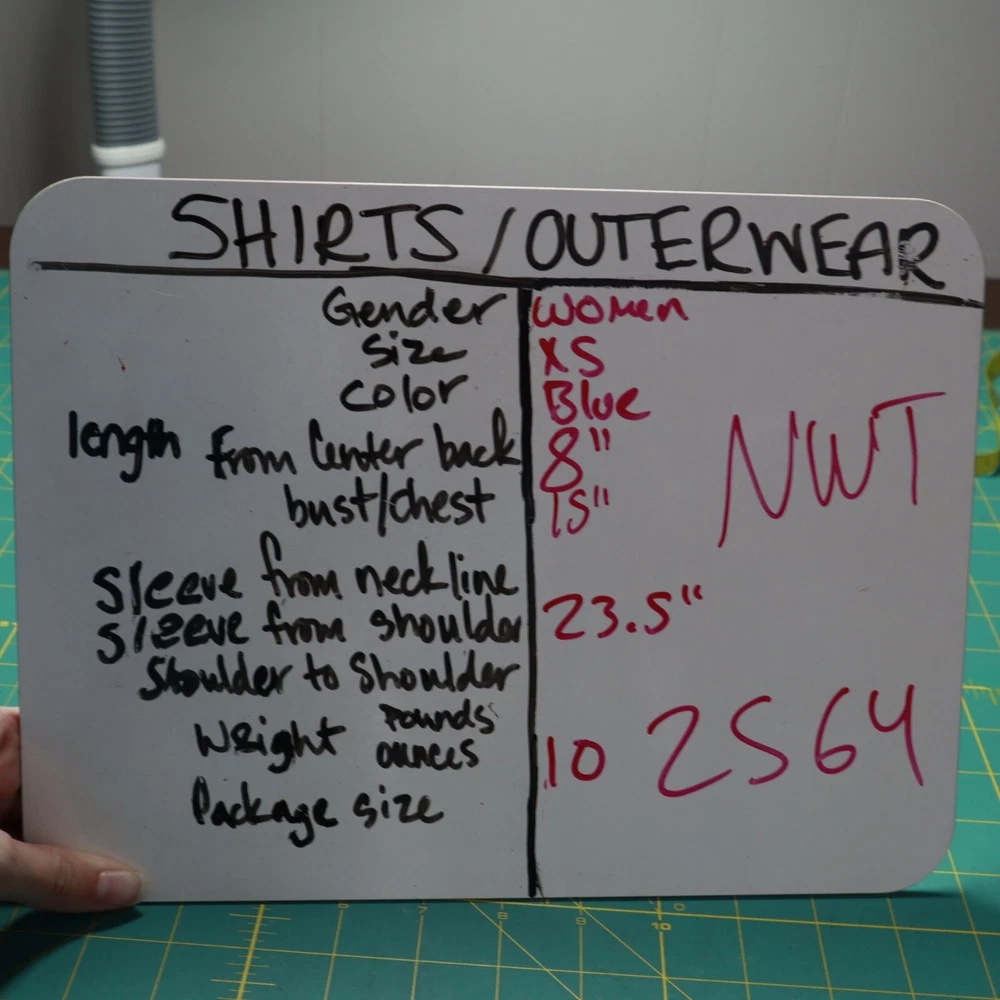 SHIRTS/OUTERWEAR
Gender women
Size XS
Color Blue
length from Center back 8"
bust/chest 15"
NWT
Sleeve from neckline
Sleeve from shoulder 23.5"
Shoulder to Shoulder
Weight pounds
ounces 10
2564
Package size
7
8
10